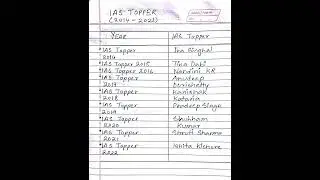 IAS TOPPER
(2014-2022)
YEAR IAS Topper
*IAS Topper 2014 Ira Singhal
*IAS Topper 2015 Tina Dabi
*IAS Topper 2016 Nandini KR
*IAS Topper 2017 Anudeep Durishetty
*IAS Topper 2018 Kanishak Kataria
*IAS Topper 2019 Pradeep Singh
*IAS Topper 2020 Shubham Kumar
*IAS Topper 2021 Shruti Sharma
*IAS Topper 2022 Ishita Kishore